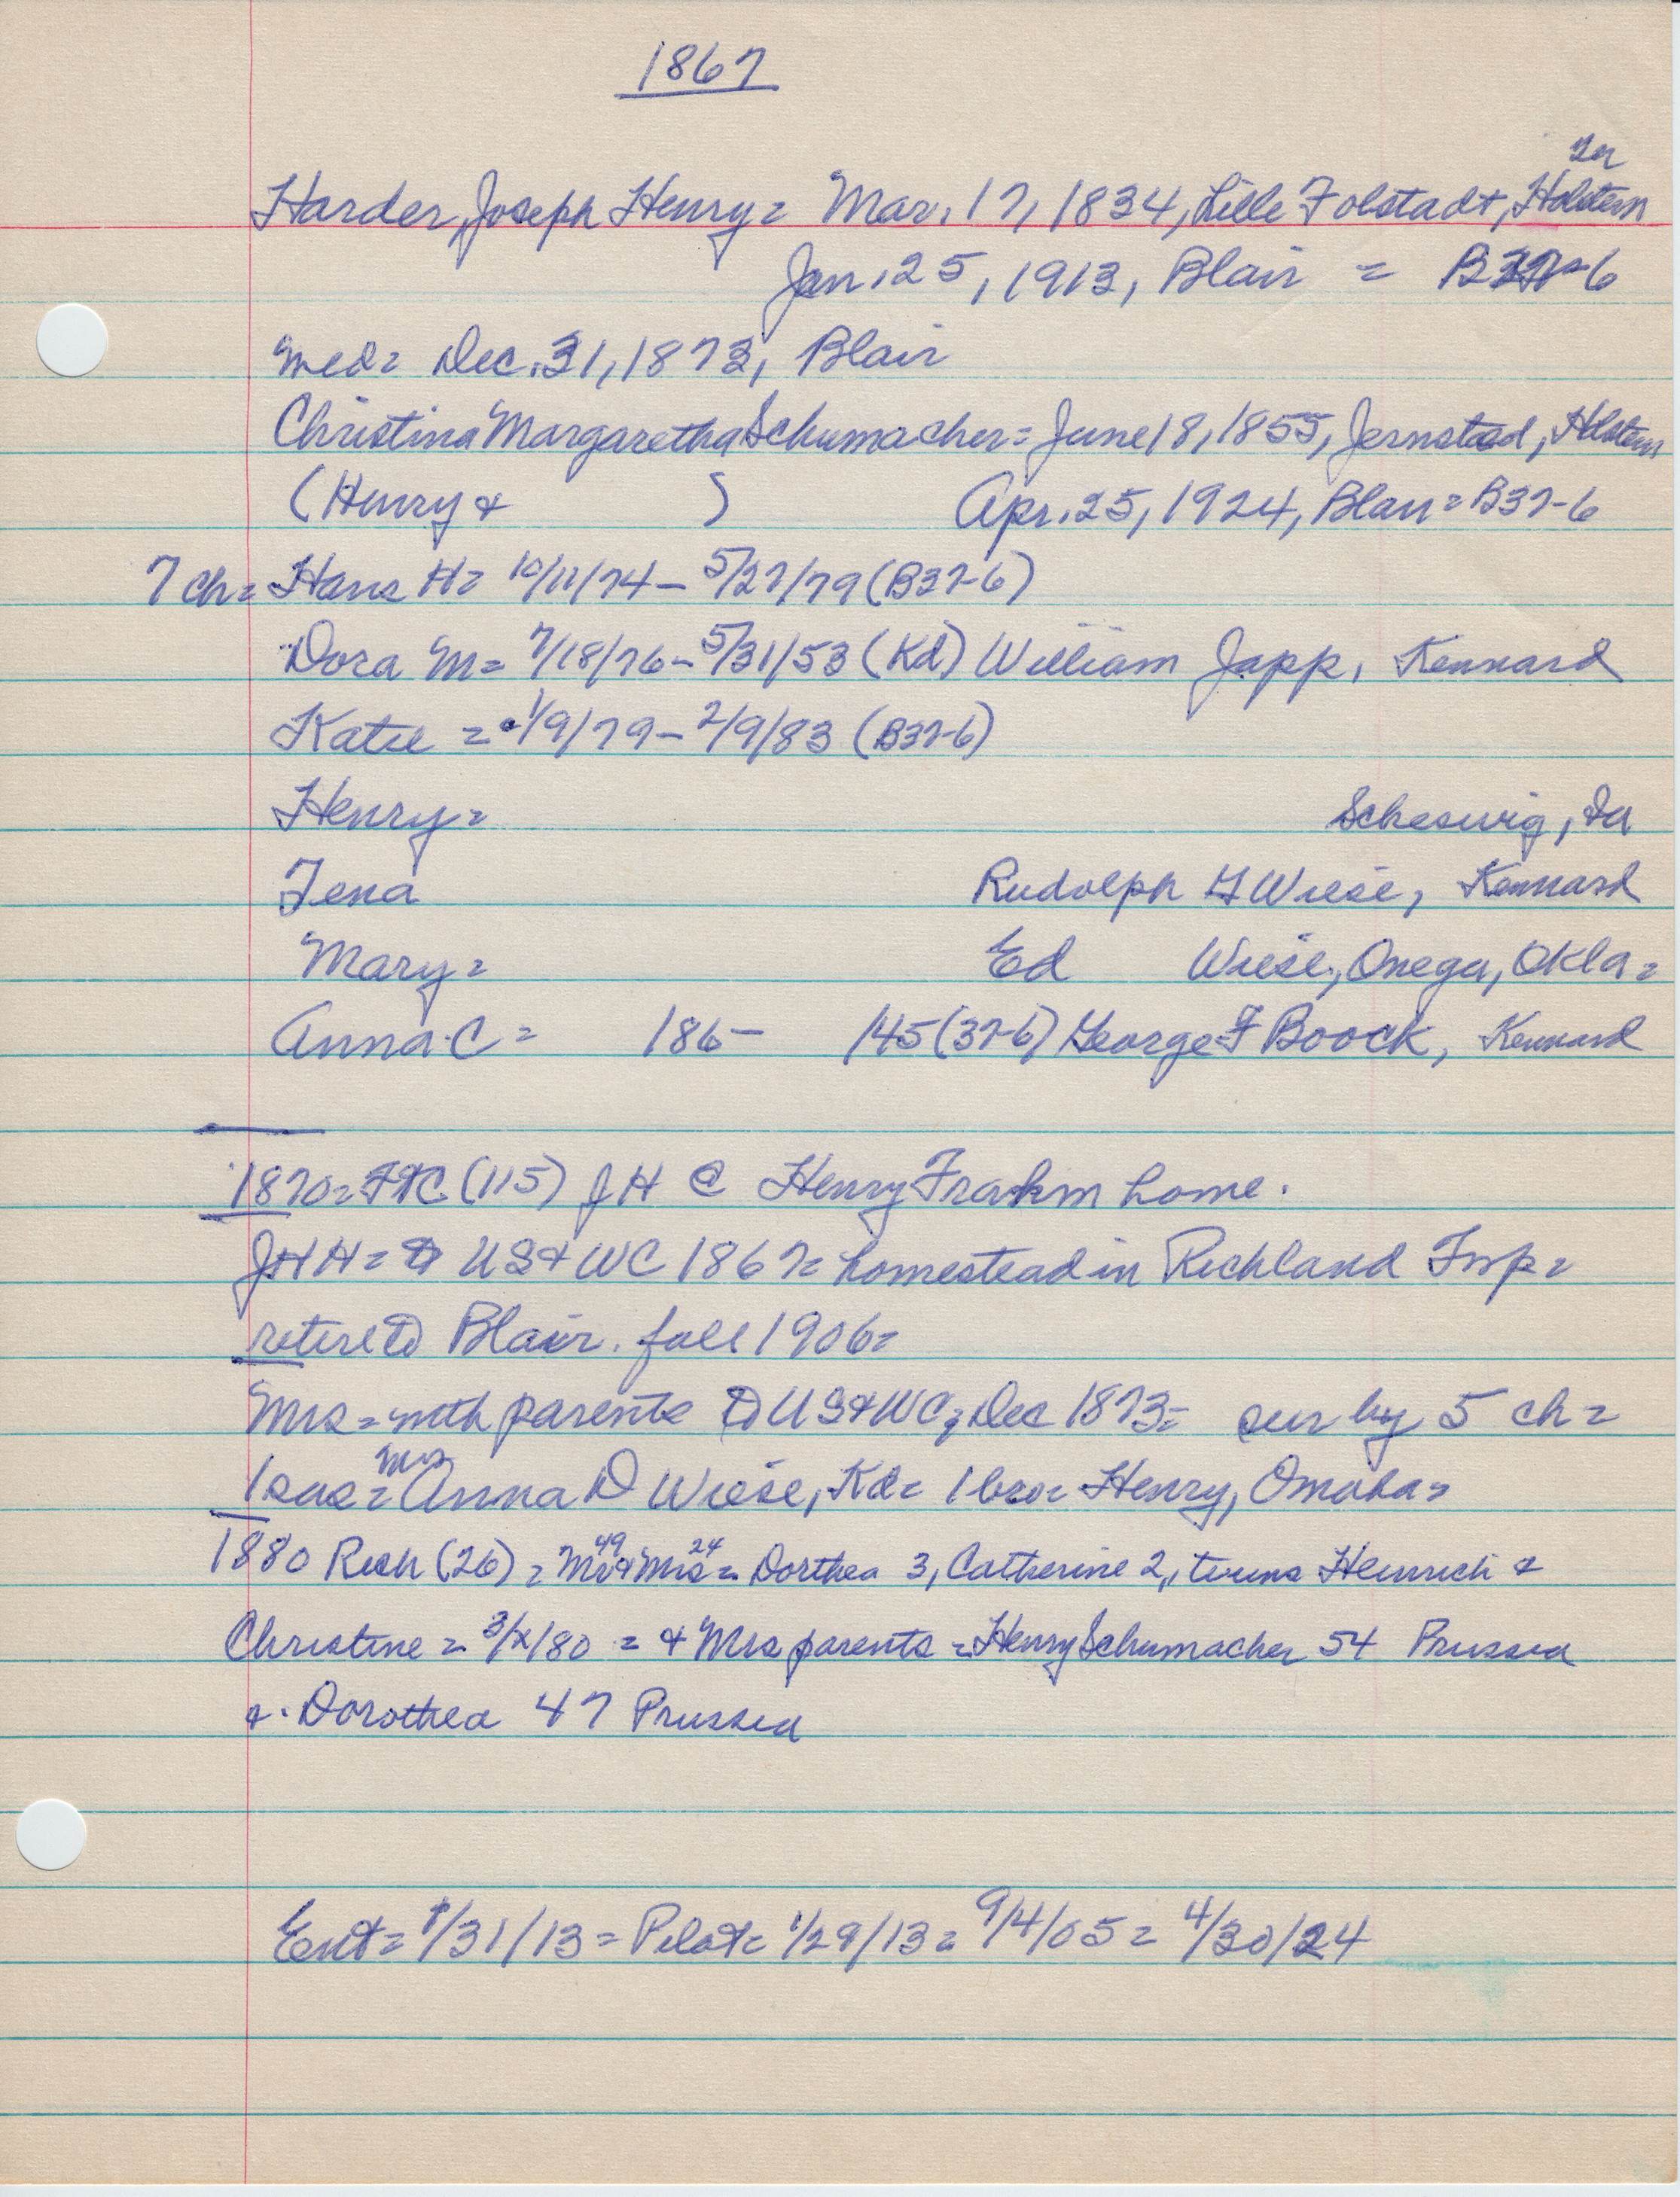 1867
Ger
Harder, Joseph Henry = Mar. 17, 1834, Lille Folstadt, Holstein
Jan. 25, 1913, Blair = B37-6
med = Dec. 31, 1873, Blair
Christina Margaretha Schumacher = June 18, 1855, Jernstad, Holstein
(Henry & ) Apr. 25, 1924, Blair = B37-6
7 ch = Hans H = 10/11/74 - 5/27/79 (B37-6)
Dora M = 7/18/76 - 5/31/53 (Kd) William Japp, Kennard
Katie = 1/9/79 - 2/9/83 (B37-6)
Henry = Scheswig, Ia
Tena Rudolph G Wiese, Kennard
Mary = Ed Wiese, Onega, Okla =
Anna C = 186- 145 (37-6) George F Boock, Kennard
1870 = (115) J H @ Henry Frahm home.
JHH = to US & WC 1867 = homestead in Richland Twp =
retire to Blair. fall 1906 =
Mrs = with parents to US & WC, Dec 1873 = sur by 5 ch =
1 sis = Mrs Anna D Wiese, Kd = 1 bro = Henry, Omaha =
1880 Rich (26) = Mr 49 & Mrs 24 = Dorthea 3, Catherine 2, twins Heinrich &
Christine = 3/x/80 = & Mrs parents = Henry Schumacher 54 Prussia
& Dorothea 47 Prussia
Ent = 1/31/13 = Pilot = 1/29/13 = 9/4/05 = 4/30/24